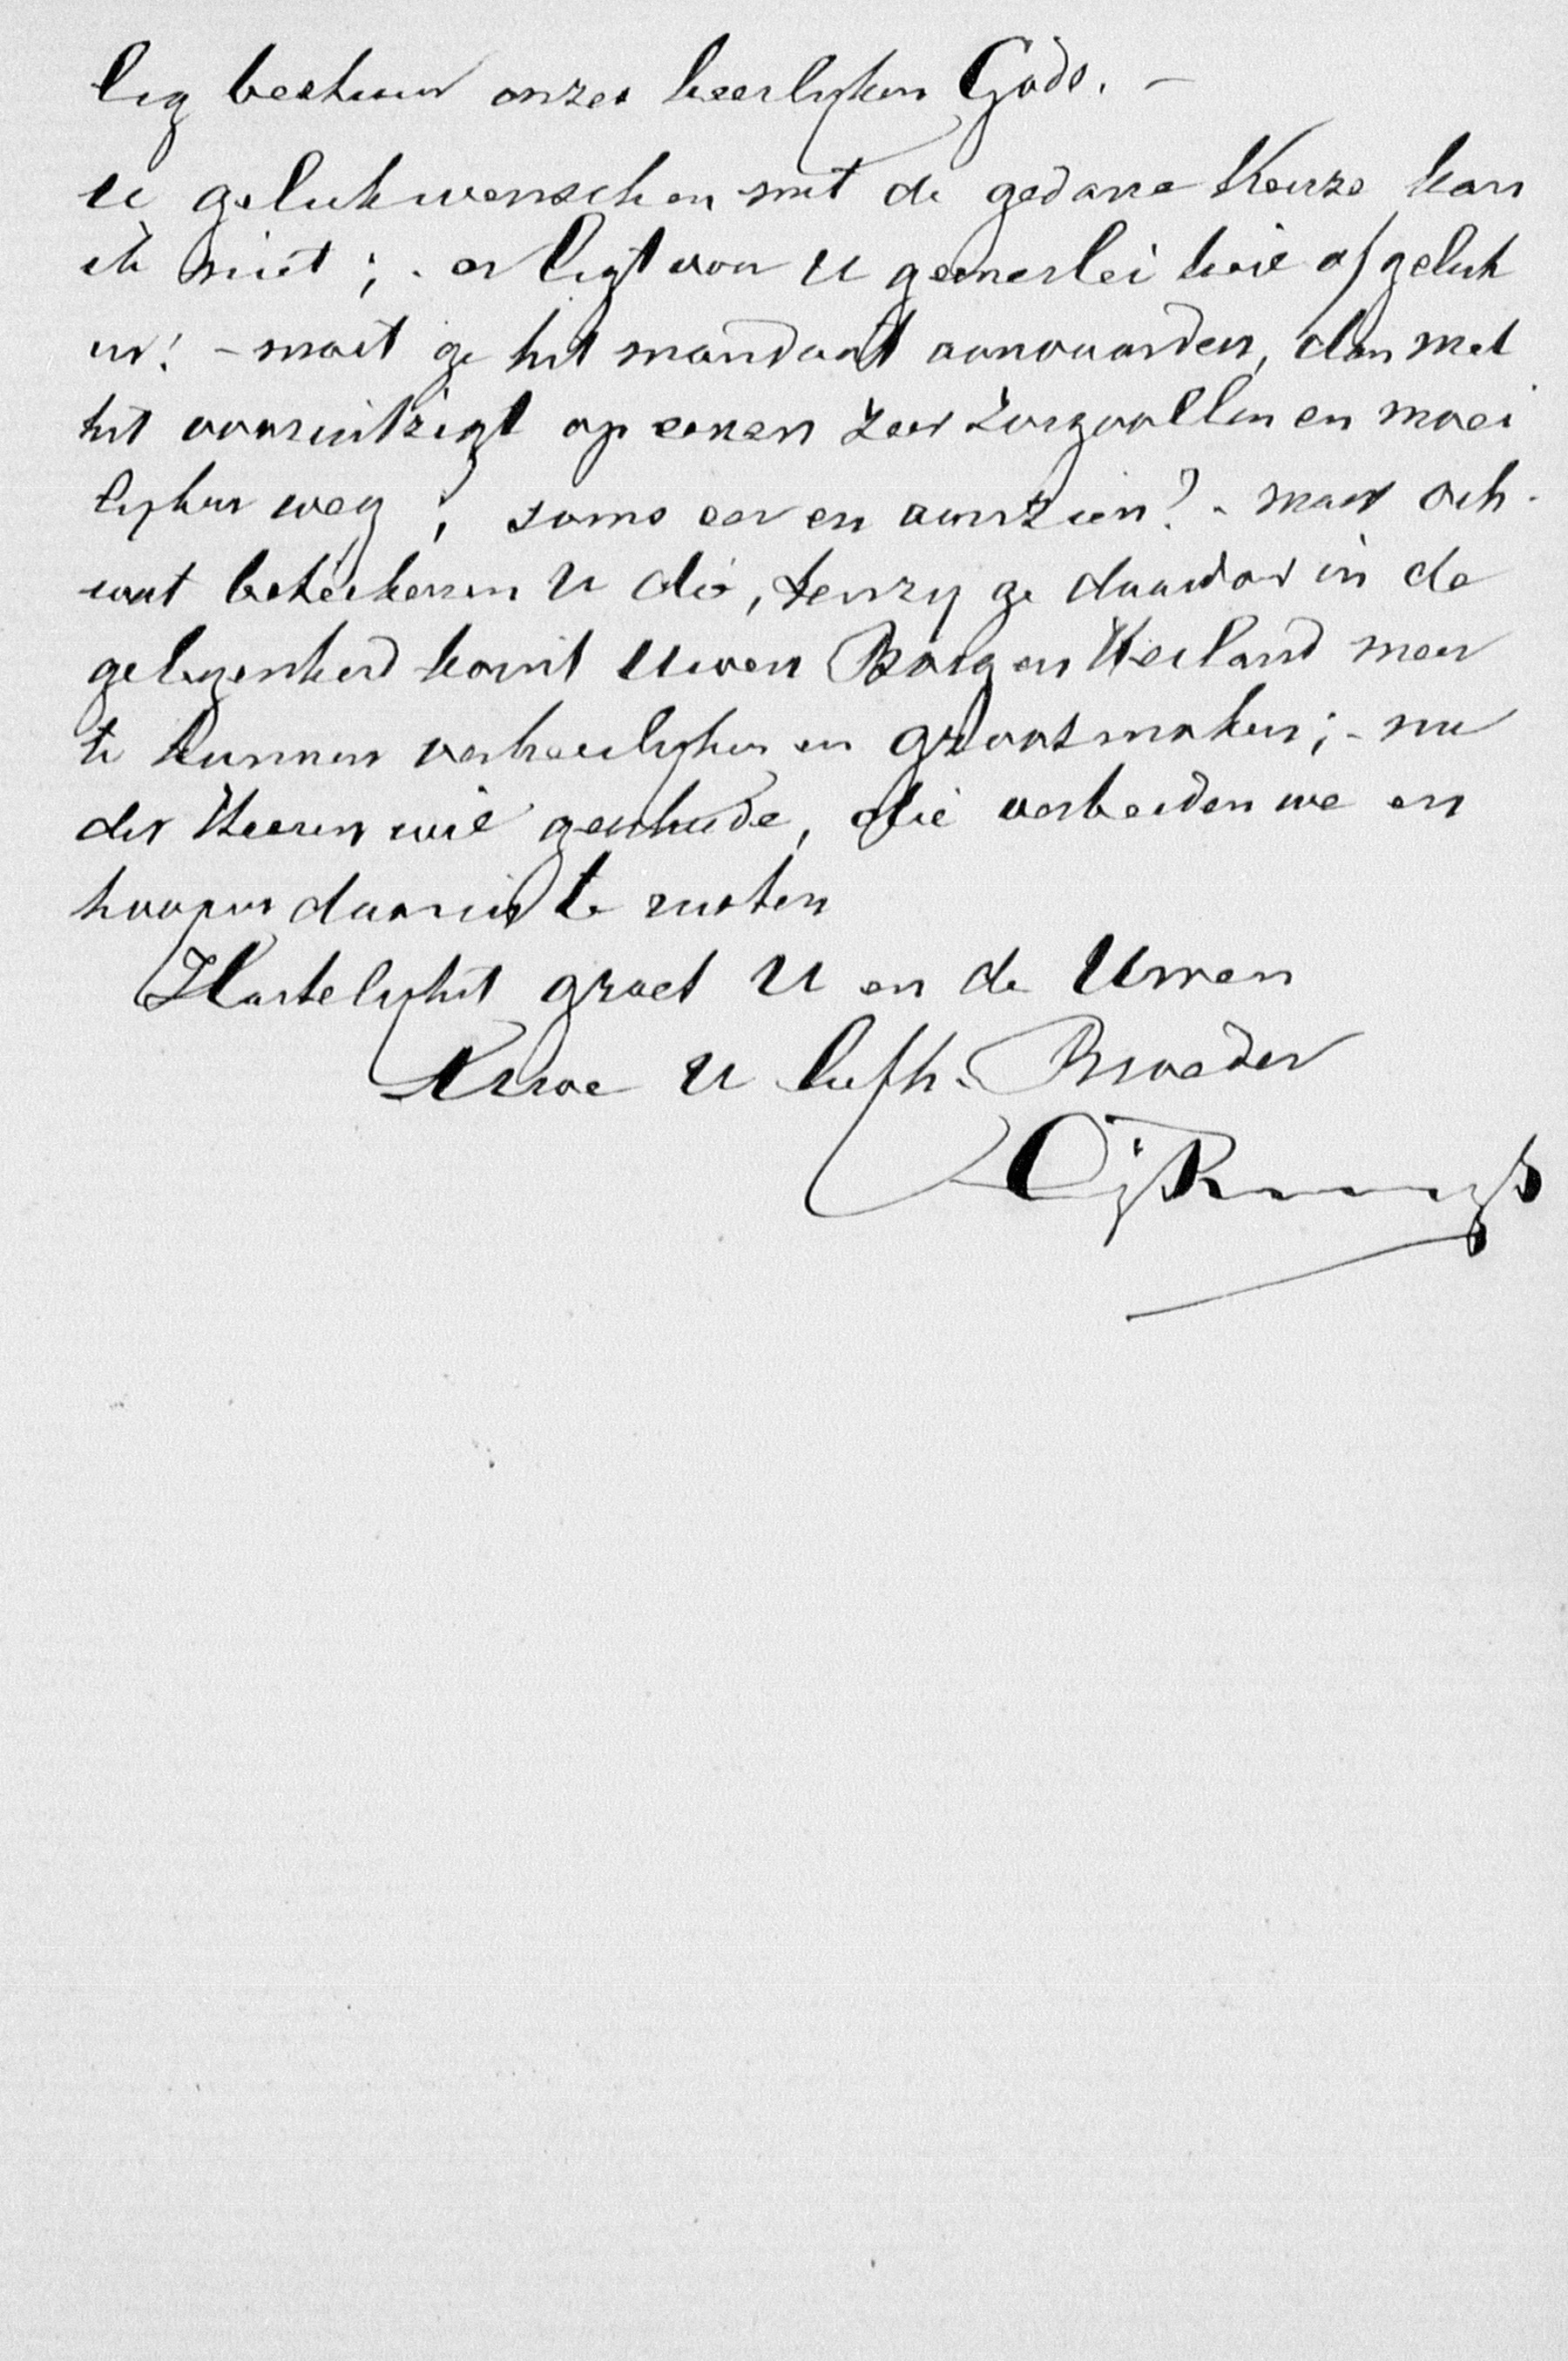 lig bestuur onzes heerlijken Gods. –
U gelukwenschen met de gedane Keuze kan
ik niet; - er ligt voor U geenerlei heil of geluk
in! – moet ge het mandaat aanvaarden, dan met
het vooruitzigt op eenen zeer zorgvollen en moei
lijken weg; soms eer en aanzien? - maar och -
wat beteekenen U die, tenzij ge daardoor in de
gelegenheid komt Uwen Borg en Heiland meer
te kunnen verheerlijken en grootmaken; - nu
des Heeren wil geschiede, die verbeiden we en
hoopen daarin te rusten
Hartelijkst groet U en de Uwen
Uwe U liefh. Broeder